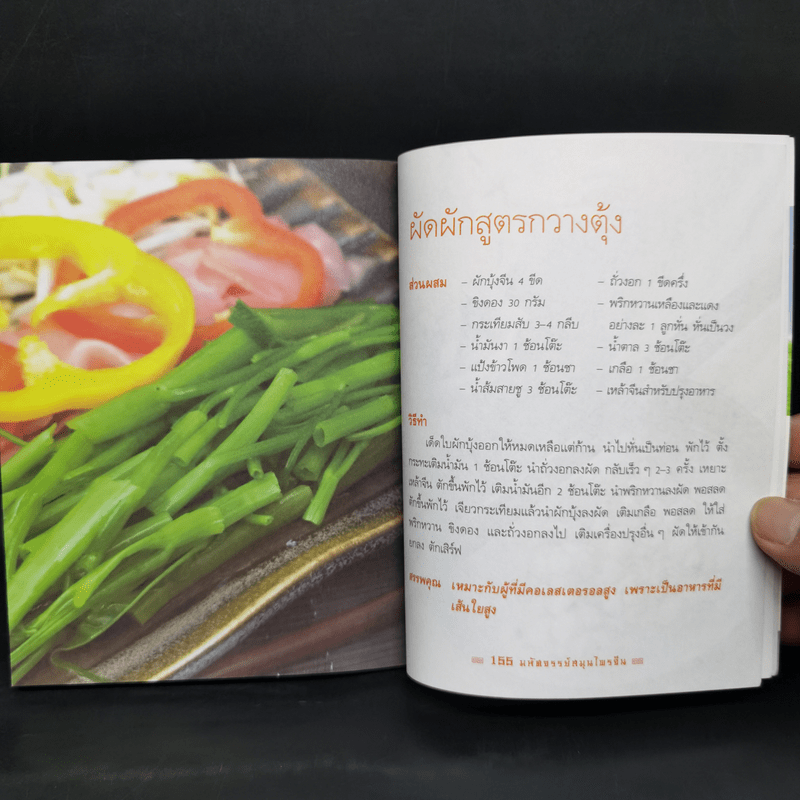 ผัดผักสูตรกวางตุ้ง
ส่วนผสม – ผักบุ้งจีน 4 ขีด – ถั่วงอก 1 ขีดครึ่ง
– ขิงดอง 30 กรัม – พริกหวานเหลืองและแดง
– กระเทียมสับ 3-4 กลีบ อย่างละ 1 ลูกหั่น หั่นเป็นวง
– น้ำมันงา 1 ช้อนโต๊ะ – น้ำตาล 3 ช้อนโต๊ะ
– แป้งข้าวโพด 1 ช้อนชา – เกลือ 1 ช้อนชา
– น้ำส้มสายชู 3 ช้อนโต๊ะ – เหล้าจีนสำหรับปรุงอาหาร
วิธีทำ
เด็ดใบผักบุ้งออกให้หมดเหลือแต่ก้าน นำไปหั่นเป็นท่อน พักไว้ ตั้ง
กระทะเติมน้ำมัน 1 ช้อนโต๊ะ นำถั่วงอกลงผัด กลับเร็ว ๆ 2-3 ครั้ง เหยาะ
เหล้าจีน ตักขึ้นพักไว้ เติมน้ำมันอีก 2 ช้อนโต๊ะ นำพริกหวานลงผัด พอสลด
ตักขึ้นพักไว้ เจียวกระเทียมแล้วนำผักบุ้งลงผัด เติมเกลือ พอสลด ให้ใส่
พริกหวาน ขิงดอง และถั่วงอกลงไป เติมเครื่องปรุงอื่น ๆ ผัดให้เข้ากัน
ยกลง ตักเสิร์ฟ
สรรพคุณ เหมาะกับผู้ที่มีคอเลสเตอรอลสูง เพราะเป็นอาหารที่มี
เส้นใยสูง
155 มหัศจรรย์สมุนไพรจีน